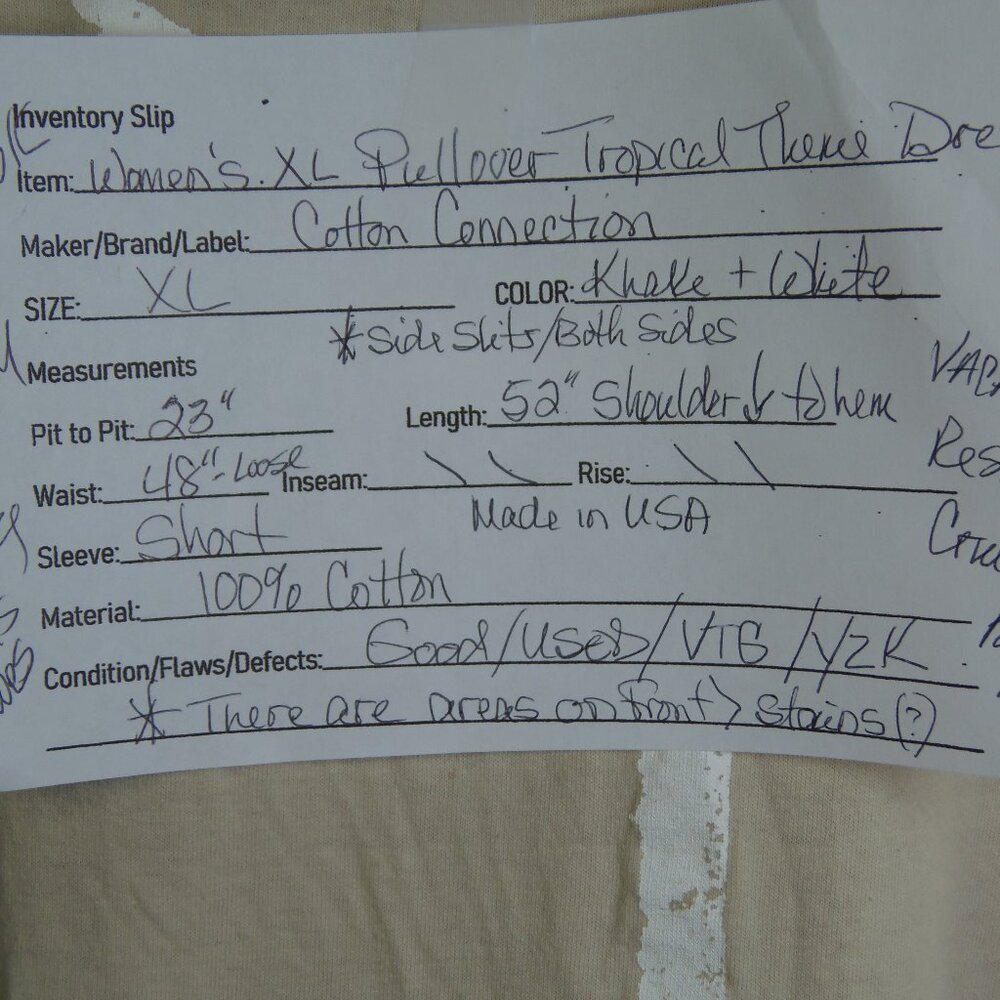 Inventory Slip
Item: Women's XL Pullover Tropical Theme Dre
Maker/Brand/Label: Cotton Connection
SIZE: XL COLOR: Khake + White
* Side Slits/Both Sides
Measurements
Pit to Pit: 23" Length: 52" Shoulder ↓ to hem
Waist: 48"-Loose Inseam: \ \ Rise: \ \
Made in USA
Sleeve: Short
Material: 100% Cotton
Condition/Flaws/Defects: Good/Used/VTG/Y2K
* There are areas on front > stains(?)
VACA
Res
Cru